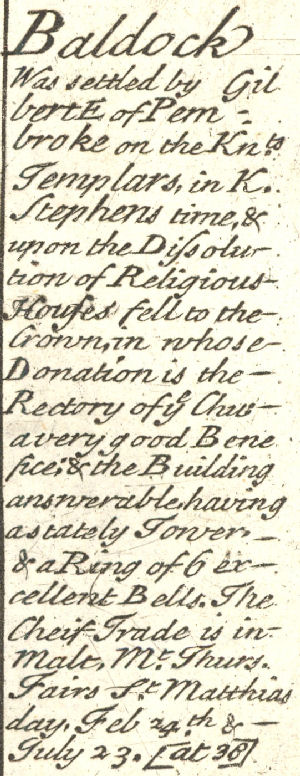 Baldock
Was settled by Gil
bert E of Pem-
broke on the Knts
Templars, in K.
Stephens time, &
upon the Dissolu-
tion of Religious
Houses fell to the
Crown, in whose
Donation is the
Rectory of ye Chur
a very good Bene
fice, & the Building
answerable, having
a stately Tower
& a Ring of 6 ex-
cellent Bells. The
Cheif Trade is in
Malt, Mt. Thurs.
Fairs St Matthias
day, Feb 24th &
July 23. [at 38]